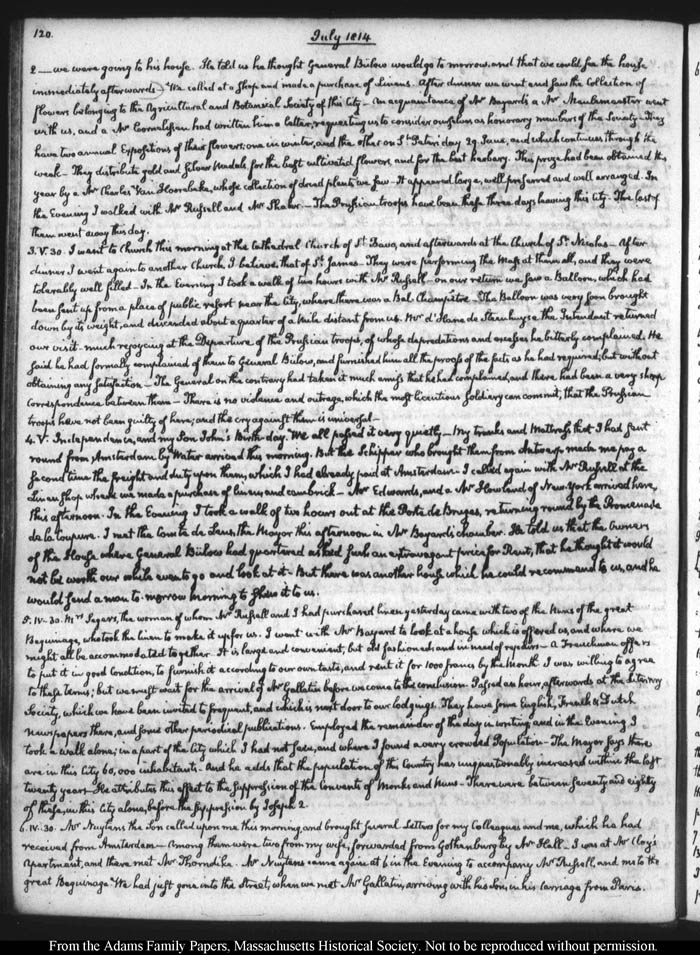 120.
July 1814
2 — we were going to his house. He told us he thought General Bülow would go to morrow. and that we could see the house
immediately afterwards — We called at a Shop and made a purchase of Linens. After dinner we went and saw the Collection of
flowers belonging to the Agricultural and Botanical Society of this City — An acquaintance of Mr Bayard's a Mr Meulemeester went
with us, and a Mr Cornelissen had written him a letter, requesting us to consider ourselves as honorary members of the Society — They
have two annual Expositions of their flowers; one in winter, and the other on St Peter's day 29 June, and which continues through the
week — They distribute gold and silver Medals for the best cultivated flowers, and for the best herbary. This prize had been obtained this
year by a Mr Charles Van Hoorebeke, whose collection of dried plants we saw — It appeared large, well preserved and well arranged. In
the Evening I walked with Mr Russell and Mr Shaler. — The Prussian troops have been these three days leaving this City. The last of
them went away this day.
3. V. 30. I went to Church this morning at the Cathedral Church of St Bavo, and afterwards at the Church of St Nicolas — After
dinner I went again to another Church, I believe, that of St James — They were performing the Mass at them all, and they were
tolerably well filled — In the Evening I took a walk of two hours with Mr Russell — on our return we saw a Balloon, which had
been sent up from a place of public resort near the City, where there was a Bal Champêtre — The Balloon was very soon brought
down by its weight, and descended about a quarter of a Mile distant from us. Mr d'Hane de Steenhuyse the Intendant returned
our visit — much rejoycing at the Departure of the Prussian troops, of whose depredations and excesses he bitterly complained. He
said he had formally complained of them to General Bülow, and furnished him all the proofs of the facts as he had required; but without
obtaining any satisfaction — The General on the contrary had taken it much amiss that he had complained, and there had been a very sharp
correspondence between them — There is no violence and outrage, which the most licentious soldiery can commit, that the Prussian
troops have not been guilty of here; and the cry against them is universal —
4. V. Independence, and my Son John's Birth-day. We all passed it very quietly — My trunks and Mattress that I had sent
round from Amsterdam by Water arrived this morning. But the Schipper who brought them from Antwerp made me pay a
second time the freight and duty upon them, which I had already paid at Amsterdam — I called again with Mr Russell at the
Linen Shop where we made a purchase of linen, and cambrick — Mr Edwards, and a Mr Howland of New-York arrived here,
this afternoon. In the Evening I took a walk of two hours out at the Porte de Bruges, returning round by the Promenade
de la Coupure. I met the Comte de Lens, the Mayor this afternoon in Mr Bayard's chamber. He told us that the Owner
of the House where General Bülow had quartered asked such an extravagant price for Rent, that he thought it would
not be worth our while even to go and look at it — But there was another house which he could recommend to us, and he
would send a man to-morrow morning to shew it to us.
5. IV. 30. Mrs Segers, the woman of whom Mr Russell and I had purchased linen yesterday came with two of the Nuns of the great
Beguinage, who took the linen to make it up for us. I went with Mr Bayard to look at a house which is offered us, and where we
might all be accommodated together. It is large and convenient, but old fashioned, and in need of repairs — a Frenchman offers
to put it in good condition, to furnish it according to our own taste, and rent it for 1000 francs by the Month. I was willing to agree
to these terms; but we must wait for the arrival of Mr Gallatin before we come to the conclusion. Passed an hour, afterwards at the Literary
Society, which we have been invited to frequent, and which is next door to our lodgings. They have some English, French & Dutch
newspapers there, and some other periodical publications. Employed the remainder of the day in writing and in the Evening I
took a walk alone; in a part of the City which I had not seen, and where I found a very crowded Population — The Mayor says there
are in this City 60,000 inhabitants. And he adds that the population of the Country has unquestionably increased within the last
twenty years — He attributes this effect to the suppression of the Convents of Monks and Nuns — There were between seventy and eighty
of these, in this City alone, before the suppression by Joseph 2.
6. IV. 30. Mr Nuytens the Son called upon me this morning, and brought several Letters for my Colleagues and me, which he had
received from Amsterdam — Among them were two from my wife, forwarded from Gothenburg by Mr Hall — I was at Mr Clay's
apartment, and there met Mr Thorndike. Mr Nuytens came again at 6 in the Evening to accompany Mr Russell, and me to the
great Beguinage. We had just gone into the Street, when we met Mr Gallatin, arriving with his Son, in his carriage from Paris.
From the Adams Family Papers, Massachusetts Historical Society. Not to be reproduced without permission.